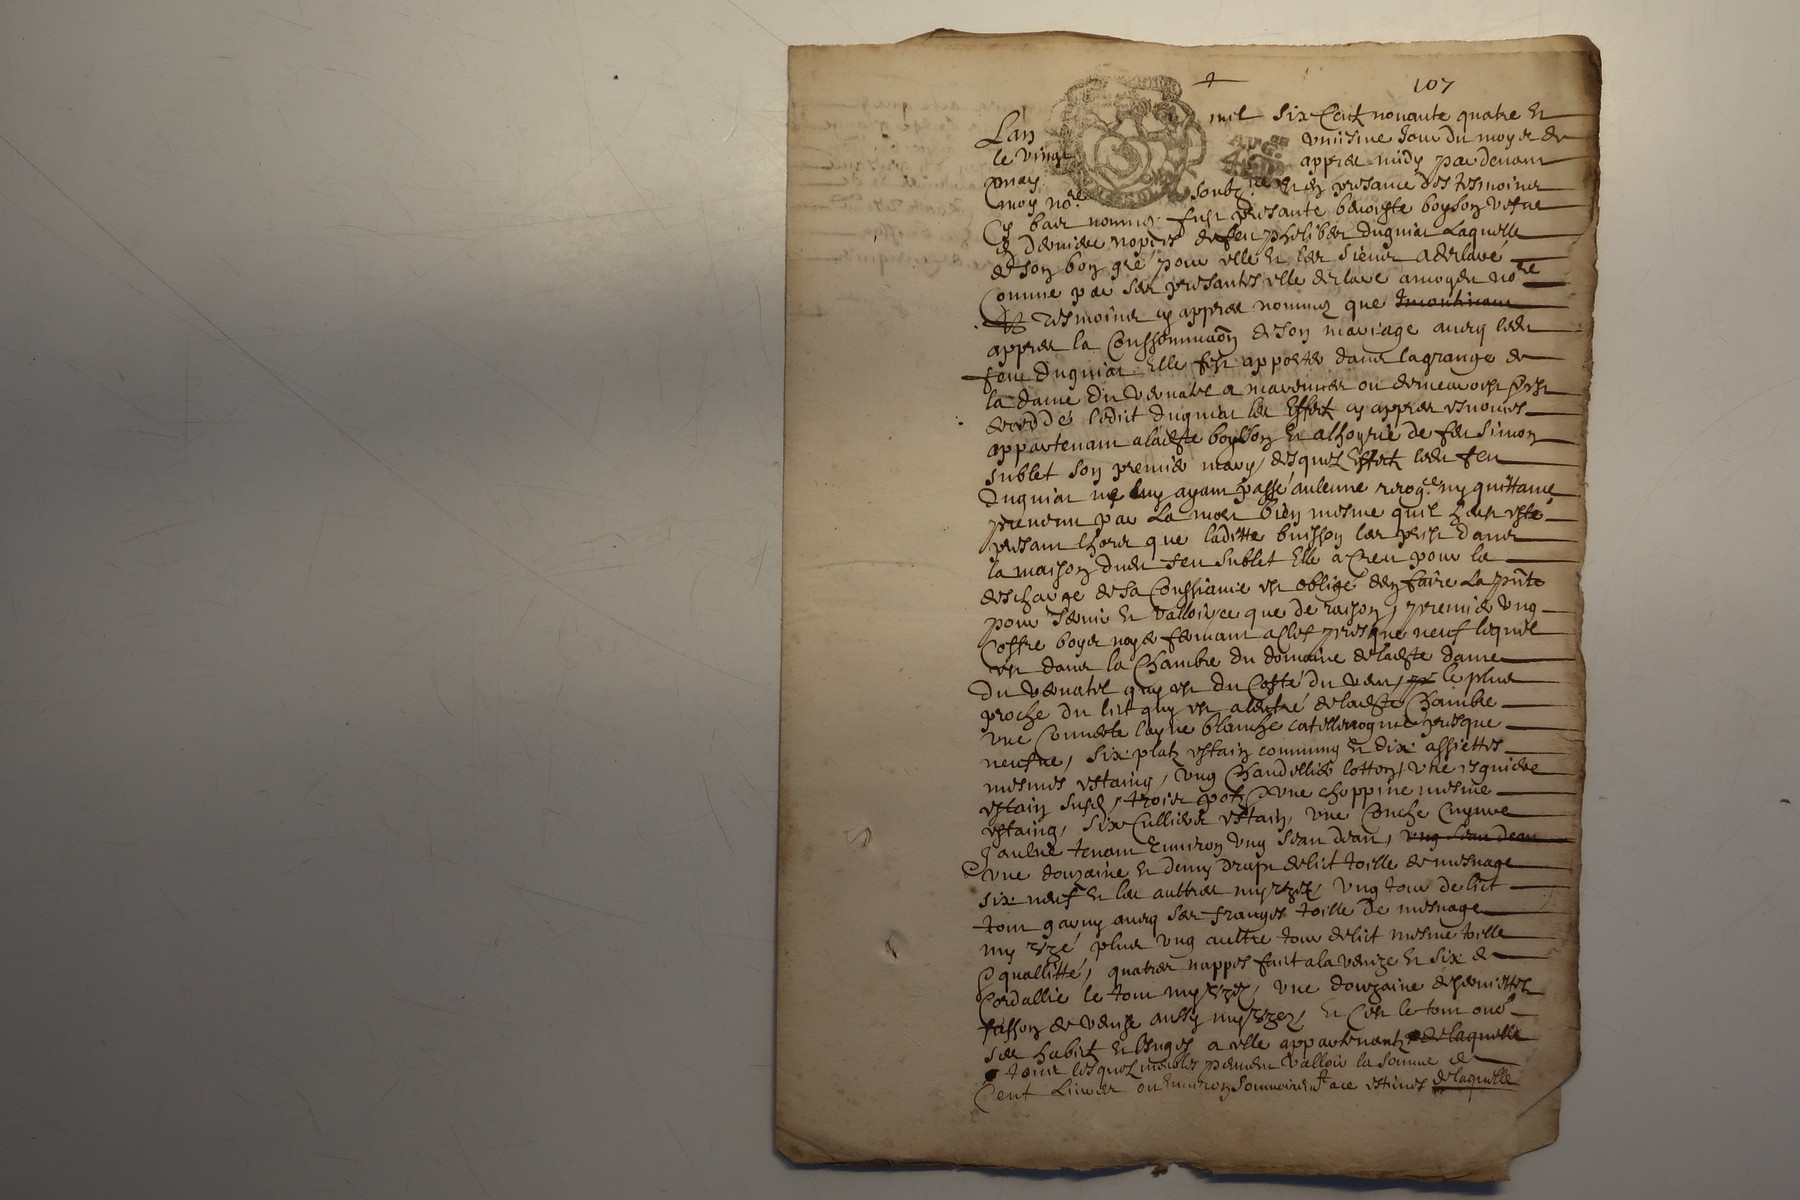 107
Lan mil six Cent nonante quatre et
le vingt unisme Jour du moys de
may appres midy par devant
moy no.re soubz.né et en presance des tesmoins
Cy bas nommes fust presante benoiste boysson vefve
en derniere nopces de feu philiber dugniat Laquelle
de son bon gré pour elle et les siens a declaré
Comme par ses presantes elle declare a moydit no.re
et tesmoins cy appres nommes que Incontinant
appres la Conssommaon de son mariage aveq ledit
feu dugniat Elle fist apporter dans la grange de
la dame du vernatel a ou demeuroist Et est
decedé ledit dugniat les Effect cy appres
appartenant a ladite boysson et a lhoyrie de feu Simon
Sublet son premier mary, desquel Effect ledit feu
dugniat ne luy ayant passé aulcune ny quittance
prevenu par La mort bien mesme quil heust esté
presant lhors que laditte buisson les prist dans
la maison dudit feu Sublet Elle a Creu pour la
descharge de sa Conssiance est obligé den faire La pnte
pour servir et valloir ce que de raison, premier ung
Coffre boys noyer fermant a clef presque neuf lequel
est dans la Chambre du domaine de ladite dame
du vernatel quy est du Costé du vent, le plus
proche du lict quy est a de ladite Chambre
une Couverte layne blanche presque
neufve, six plat estain commung et dix assiettes
mesmes estaing, ung Chandellier lotton, une esguiere
estain trois potz une choppine mesme
estaing, six Cullieres estain, une Cuyvre
tenant Environ ung seau deau, ung seau deau
une douzaine et demy drap de lict toille de mesnage
six neuf et les aultres my uzez, ung tour de lict
tout garny aveq ses franges toille de mesnage
my uzé, plus ung aultre tour de lict mesme toille
quallitté, quatres nappes fait a la venize et six de
Cordallie le tout my uzez, une douzaine de serviettes
fasson de venize aussy my uzez, et Cest le tout
ses habict et linges a elle appartenant de laquelle
tous lesquel meubles peuvent valloir la somme de
Cent Livres ou Environ estimes de laquelle